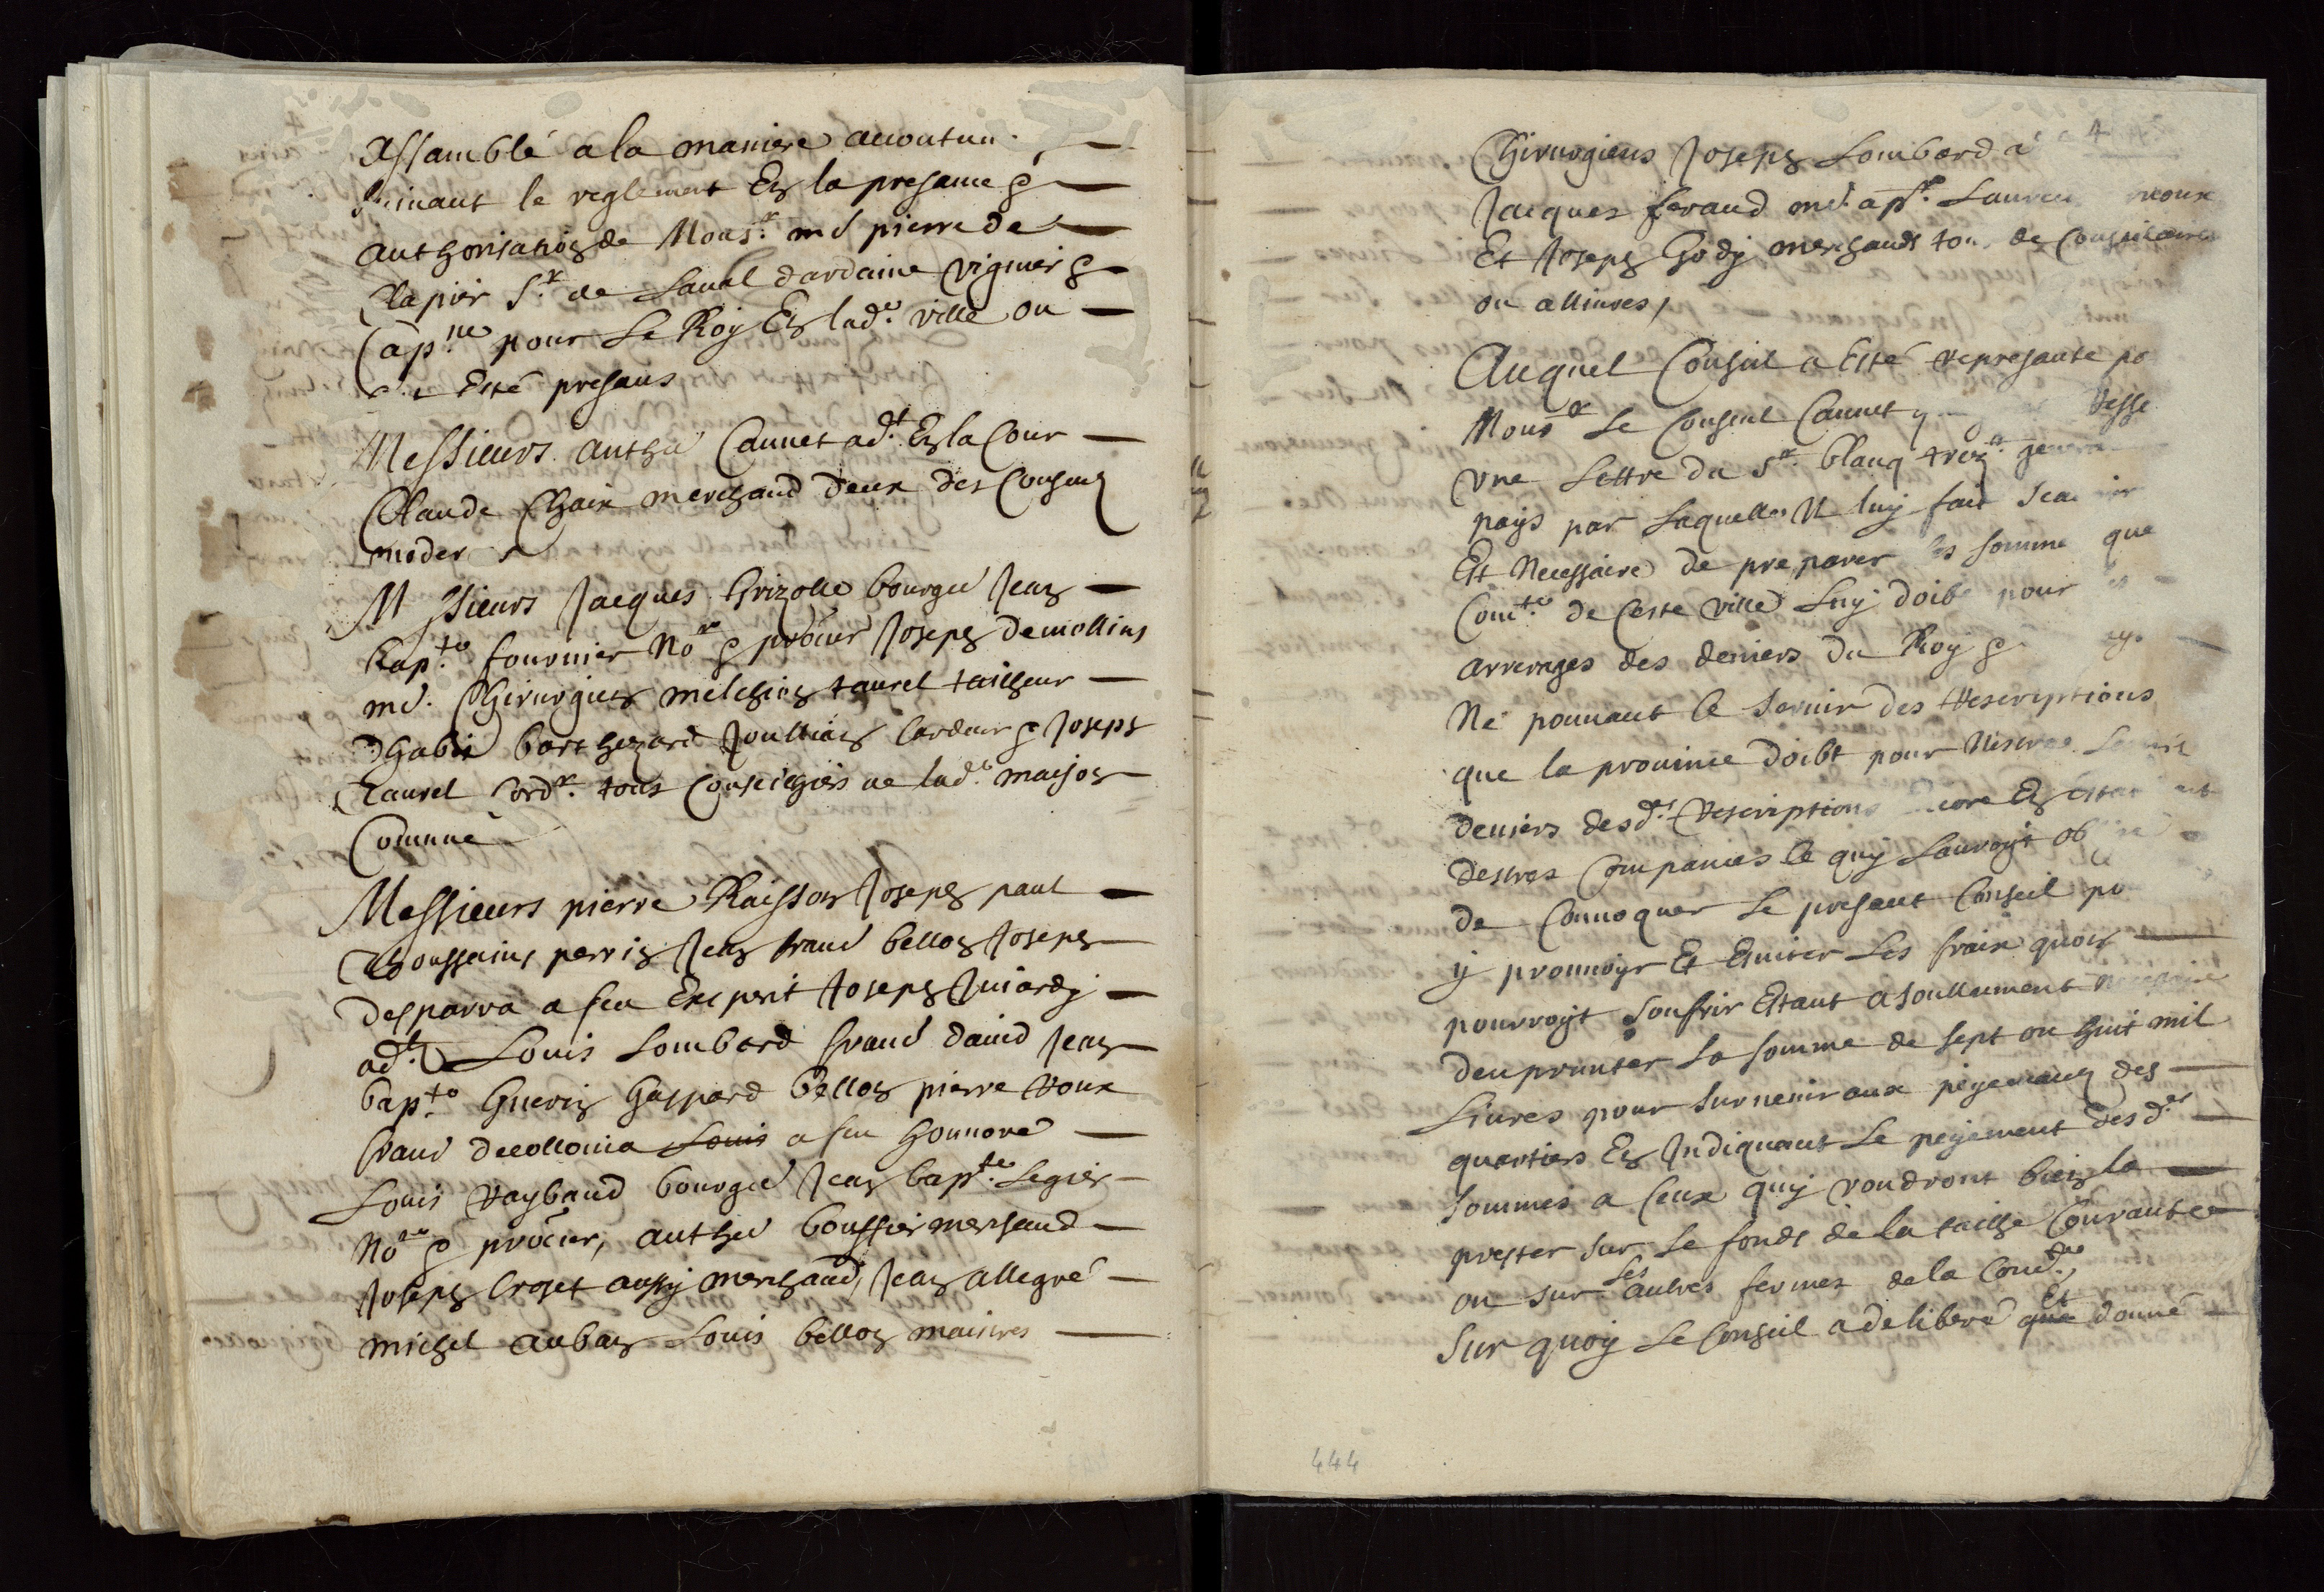 Assamblé a la maniere accoutum
suivant le reglement En la presance &
authorisation de Mons.r me pierre de
Clapier s.r de Laval dardaine viguier &
Cap.ne pour Le Roy En lad.e ville ou
Esté presans
Messieurs anthe Caunet ad.t En la Cour
Claude Chaix merchand deux des Consuls
moder
Messieurs Jacques Grizolle bourgs Jean
bap.te fournier No.re & procur Joseph demollins
me. Chirurgien melchion taurel tailheur
dhabis barthezard Joullian Cardeur & Joseph
Taurel Cord.r tous Conseilhiers de lad.e maison
Comune
Messieurs pierre Raisson Joseph paul
Toussains perrin Jean franc bellon Joseph
desparra a feu Exsperit Joseph Juiardy
ad.t Louis Lombard franc david Jean
bap.te Guerin Gaspard bellon pierre Roux
franc decollonia Louis a feu honnoré
Louis Raybaud bourgs Jean bap.te Legier
No.re & procur, anthe boussier merchand
Joseph Croset aussy merchand, Jean allegre
michel auban Louis bellon maistres
4
Chirurgiens Joseph Lombard a
Jacques feraud me. ap.re Laurens
Et Joseph Gody merchands tous de Consulaires
ou allivres,
Auquel Conseil a Esté represanté po
Mons.r Le Consul Caunet
Une Lettre du S.r blanq trez.r genera
pays par Laquelle Il luy fait scavoir
Est Necessaire de preparer les somme que
Com.te de Ceste ville Luy doibt pour
arrerages des deniers du Roy &
Ne pouvant se servir des Rescriptions
que la province doibt pour
deniers desd.s Rescriptions Encore En estat
desves Companies Ce quy Lauroyt ob
de Convoquer Le presant Conseil po
y prouvoyr Et Eviter Les fraix quon
pourroyt soufrir Estant absoullument necessaire
denprunter La somme de sept ou huit mil
Livres pour survenir aux peyemans des
quartiers En Indiquant Le peyement desd.es
sommes a Ceux quy voudront bien la
prester sur Le fonds de la tailhe Courante
ou sur Les autres fermes de la Com.té,
Sur quoy Le Conseil a deliberé que Et donné
444